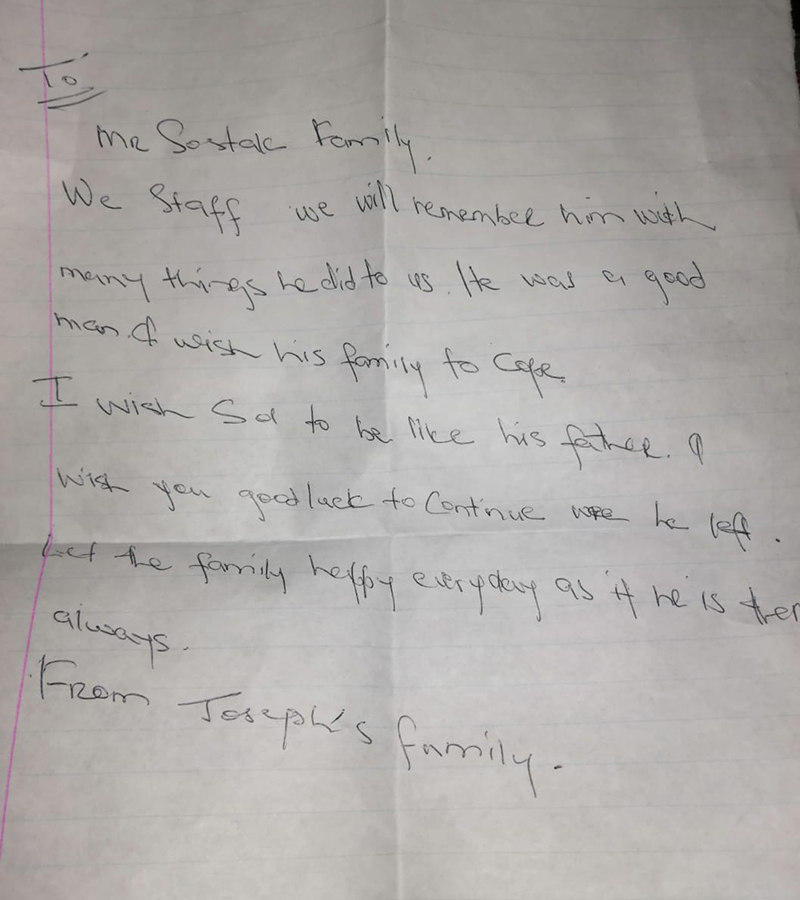 To
Mr Sostak Family.
We Staff we will remember him with
many things he did to us. He was a good
man. I wish his family to cope.
I wish Sol to be like his father. I
wish you good luck to Continue were he left.
Let the family happy everyday as if he is ther
always.
From Joseph's family.